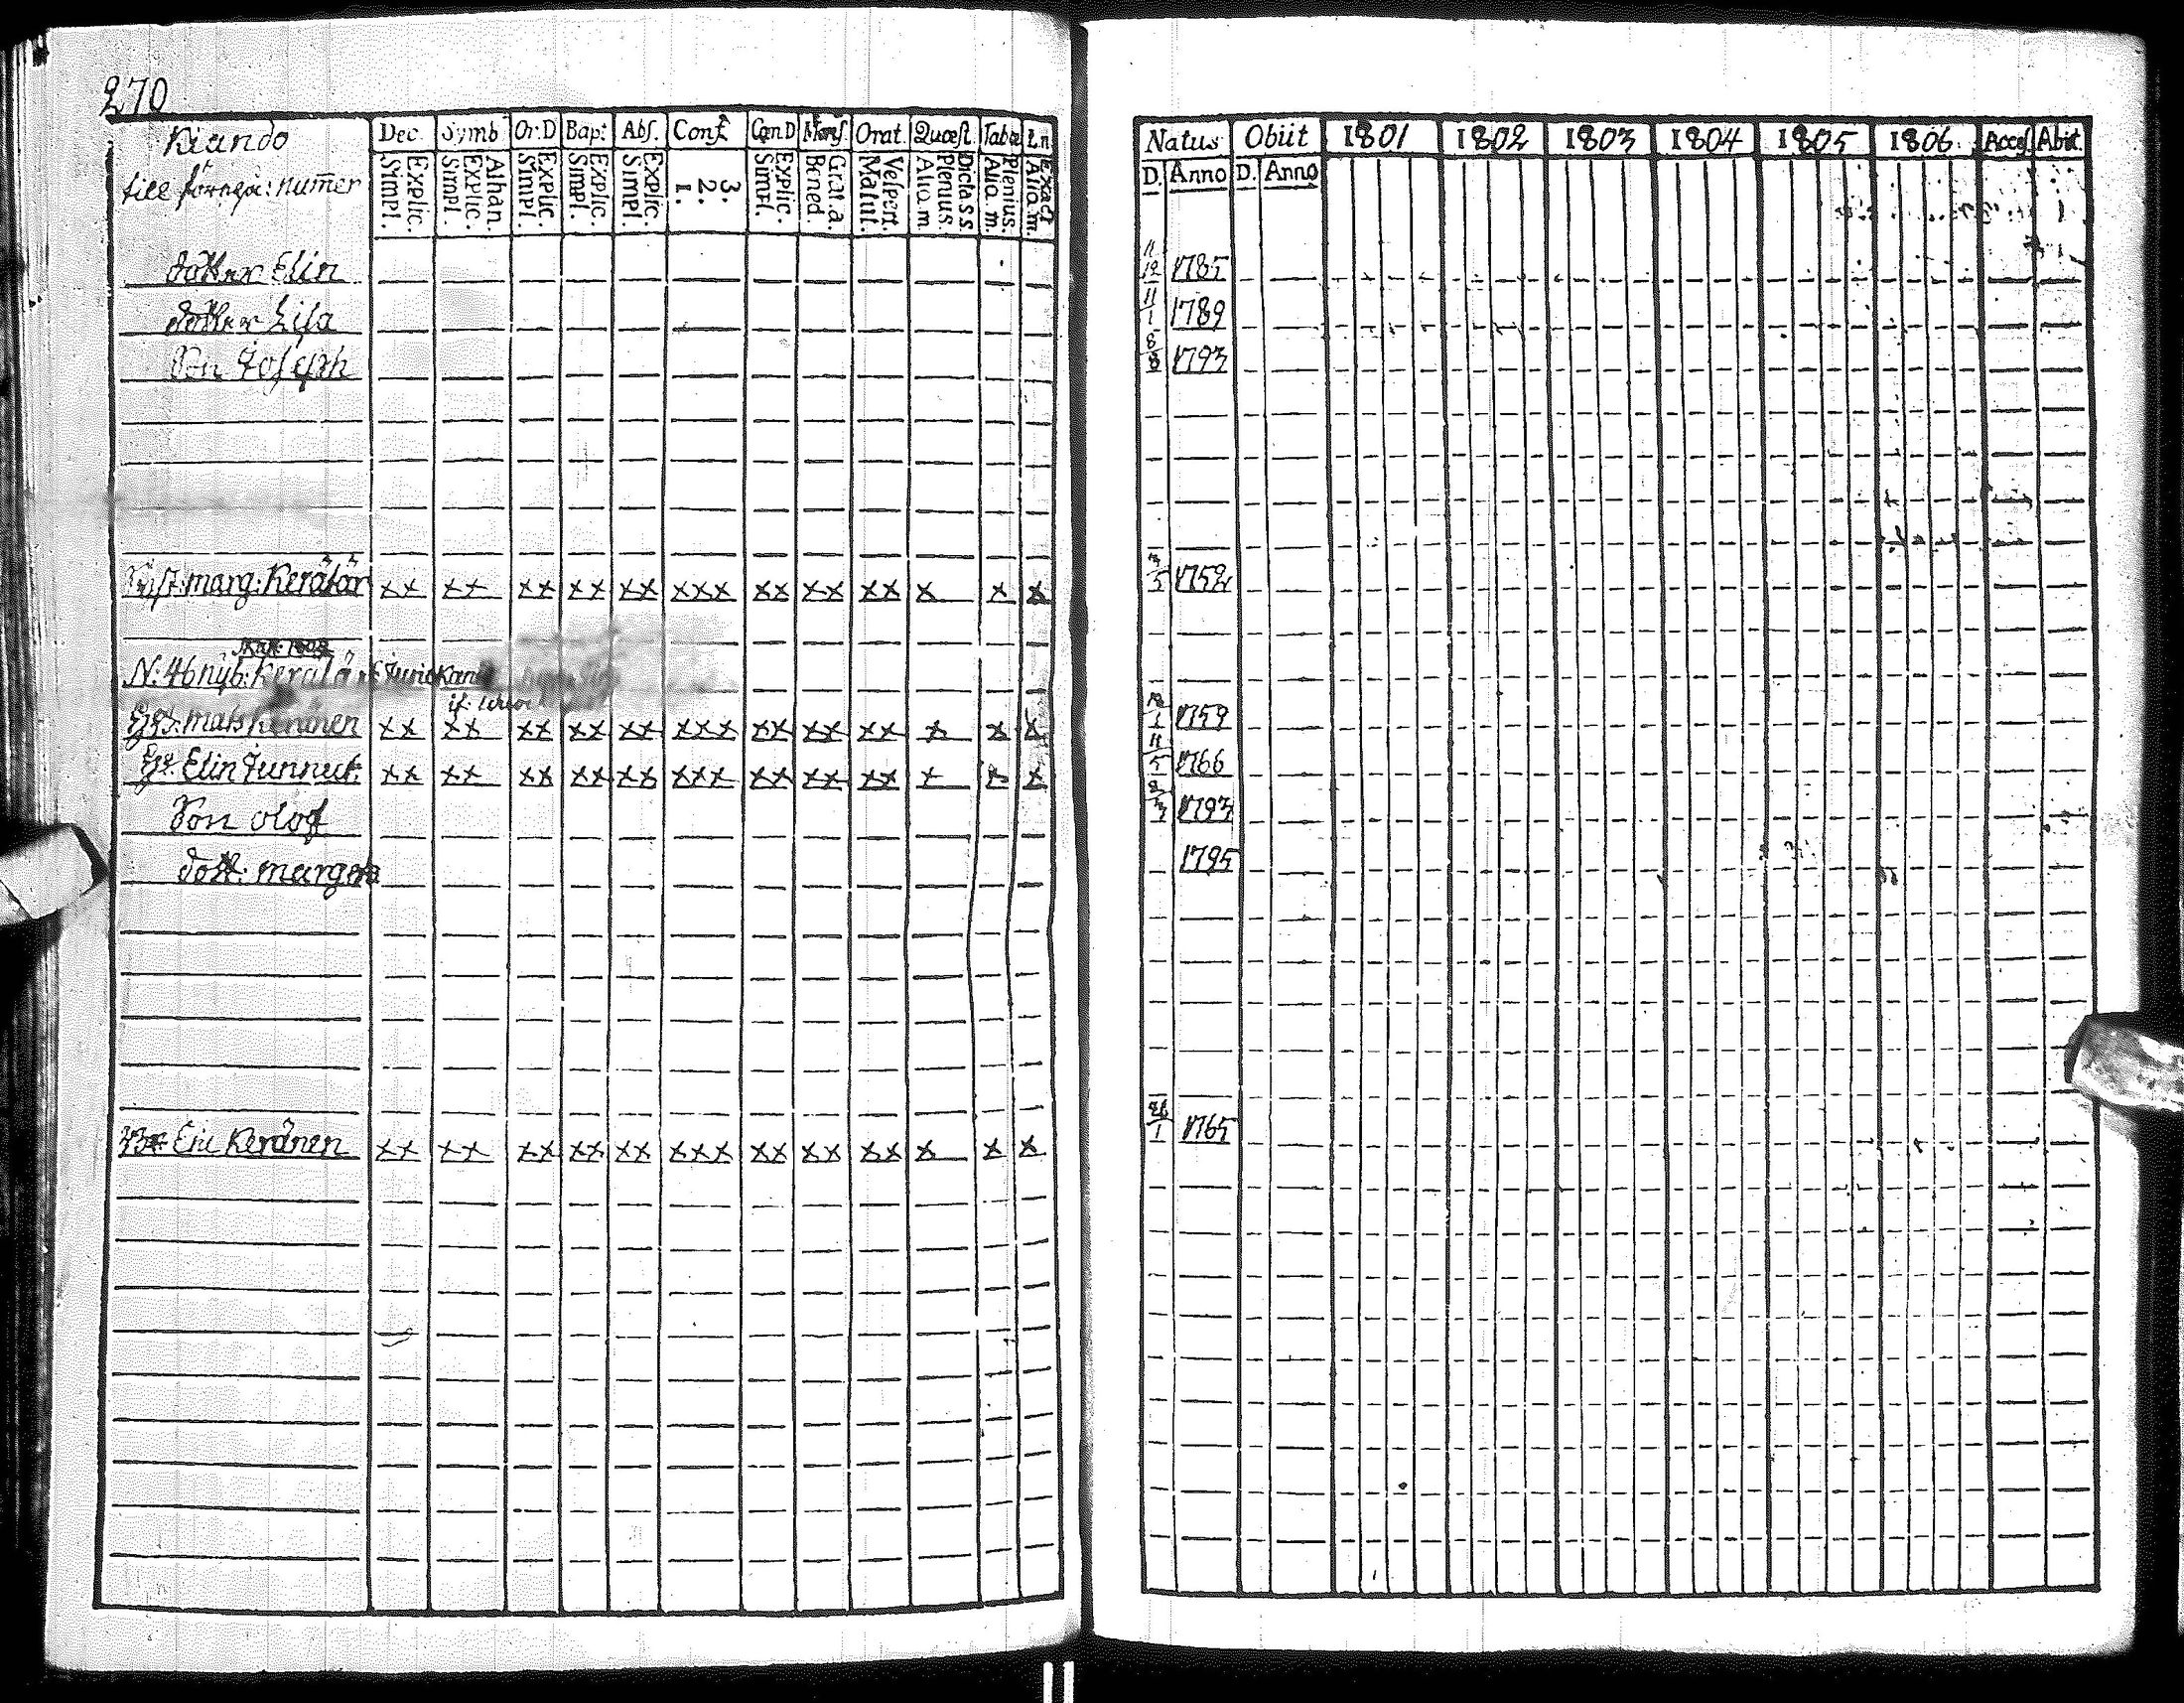 270
Kiando
till föregå: numer
Dec. Symb. Or.D Bapt Abs. Conf. CænD Mens. Orat. Quæst. Tabæ Ln.
Explic. Simpl. Athan. Explic. Simpl. Explic. Simpl. Explic. Simpl. Explic. Simpl. 3. 2. 1. Explic. Simpl. Grat. a. Bened. Vespert. Matut. Dicta s s. Plenius. Alio. m. Plenius. Alio. m. Exact Alio. m.
Natus Obiit 1801 1802 1803 1804 1805 1806 Acces. Abiit.
D. Anno D. Anno
dotter Elin 11/12 1785
dotter Lisa 11/1 1789
Son Joseph 8/8 1793
marg: Kerätär xx xx xx xx xx xxx xx xx xx x x x 3/5 1752
N: 46 nyb: Kerälä
Mats Keränen xx xx xx xx xx xxx xx xx xx x x x 1759
Elin Junnut: xx xx xx xx xx xxx xx xx xx x x x 11/5 1766
Son Olof 1793
dott: margeta 1795
Eric Keränen xx xx xx xx xx xxx xx xx xx x x x 26/1 1765